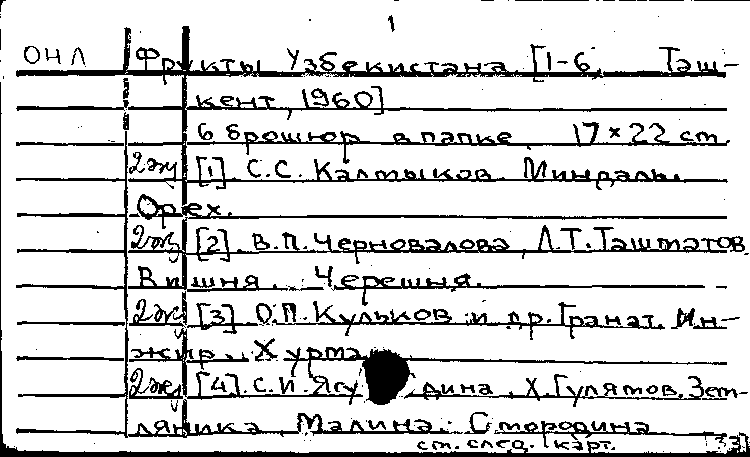 1
ОНЛ Фрукты Узбекистана [1-6, Таш-
кент, 1960]
6 брошюр в папке. 17×22 cm
2 экз [1]. С.С. Калмыков. Миндаль.
Орех.
2 экз [2]. В.П. Черновалова, Л.Т. Ташматов.
Вишня. Черешня.
2 экз [3]. О.П. Кульков и др. Гранат. Ин-
жир. Хурма.
2 экз [4]. С.И. Ягу дина, Х. Гулямов. Зем-
ляника. Малина. Смородина
см. след. карт. [33]